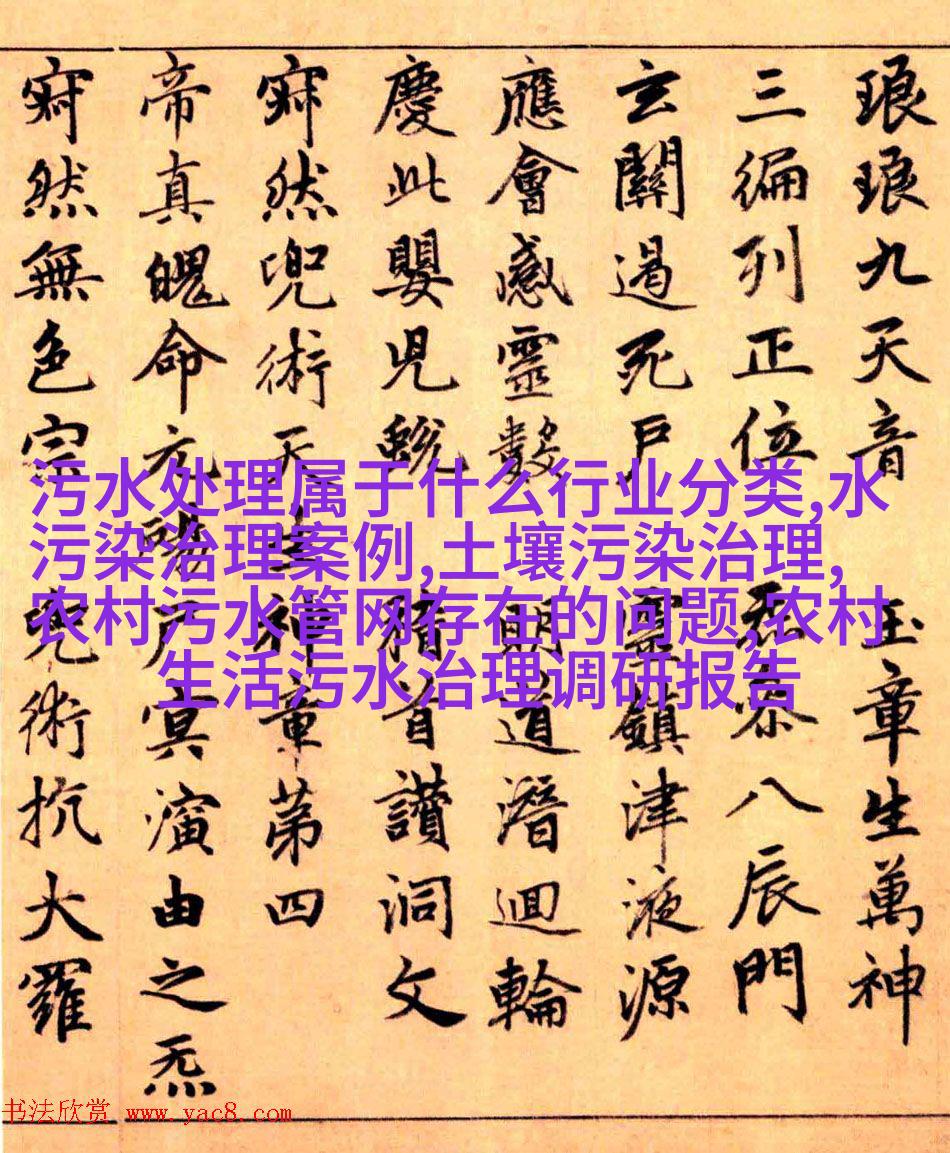 琅琅九天音 玉章生萬神
三徧列正位 八辰門
玄關過死戶 鎮津液源
應會感靈數 道潛迴輪
慶此嬰兒蛻 首讃洞文
寂然兜術天生神章第四
帝真魄命元戶冥演由之炁
寂然無色宗 兜術抗大羅
污水处理属于什么行业分类,水
污染治理案例,土壤污染治理,
农村污水管网存在的问题,农村
生活污水治理调研报告
书法欣赏 www.yac8.com